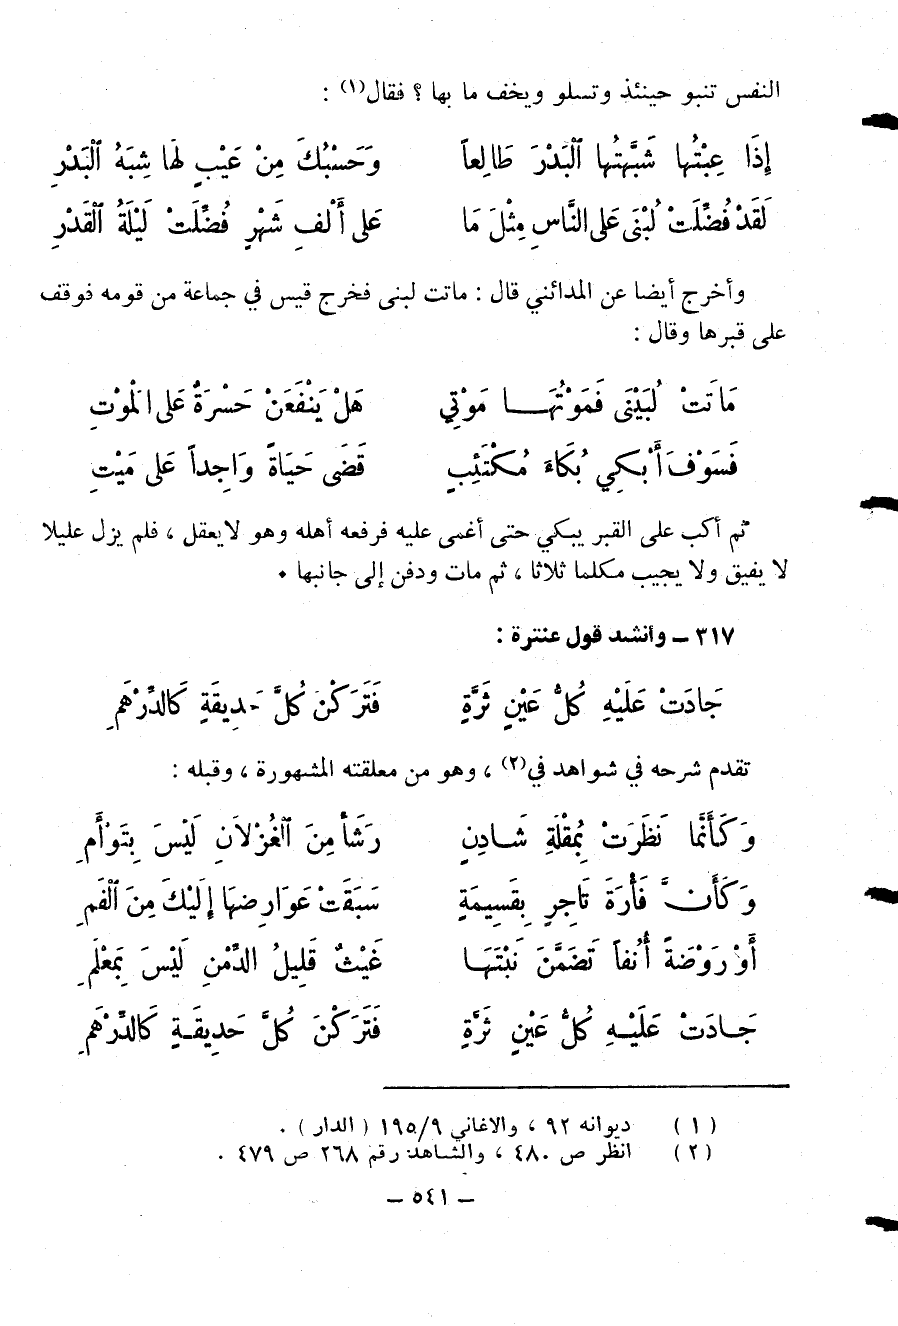 النفس تنبو حينئذ وتسلو ويخف ما بها ؟ فقال(١) :
إِذَا عِبْتُها شَبَّهْتُها اَلْبَدْرَ طَالِعاً وَحَسْبُكَ مِنْ عَيْبٍ لَها شِبَهُ اَلْبَدْرِ
لَقَدْ فُضِّلَتْ لُبْنَى عَلى النَّاسِ مِثْلَ مَا عَلى أَلْفِ شَهْرٍ فُضِّلَتْ لَيْلَةُ اَلْقَدْرِ
وأخرج أيضا عن المدائني قال : ماتت لبنى فخرج قيس في جماعة من قومه فوقف
على قبرها وقال :
مَاتَتْ لُبَيْنَى فَمَوْتُهَا مَوْتِي هَلْ يَنْفَعَنْ حَسْرَةٌ عَلى الْمَوْتِ
فَسَوْفَ أَبْكِي بُكَاءَ مُكْتَئِبٍ قَضَى حَيَاةً وَاجِداً عَلى مَيْتِ
ثم أكب على القبر يبكي حتى أغمى عليه فرفعه أهله وهو لايعقل ، فلم يزل عليلا
لا يفيق ولا يجيب مكلما ثلاثا ، ثم مات ودفن إلى جانبها •
٣١٧ ـ وأنشد قول عنترة :
جَادَتْ عَلَيْهِ كُلُّ عَيْنٍ ثَرَّةٍ فَتَرَكْنَ كُلَّ حَدِيقَةٍ كَالدِّرْهَمِ
تقدم شرحه في شواهد في(٢) ، وهو من معلقته المشهورة ، وقبله :
وَكَأَنَّما نَظَرَتْ بِمُقْلَةِ شَادِنٍ رَشَأٍ مِنَ اَلْغُزْلَانِ لَيْسَ بِتَوْأَمِ
وَكَأَنَّ فَأْرَةَ تَاجِرٍ بِقَسِيمَةٍ سَبَقَتْ عَوَارِضَهَا إِلَيْكَ مِنَ اَلْفَمِ
أَوْ رَوْضَةً أُنُفاً تَضَمَّنَ نَبْتَهَا غَيْثٌ قَلِيلُ الدِّمْنِ لَيْسَ بِمَعْلَمِ
جَادَتْ عَلَيْهِ كُلُّ عَيْنٍ ثَرَّةٍ فَتَرَكْنَ كُلَّ حَدِيقَةٍ كَالدِّرْهَمِ
(١) ديوانه ٩٢ ، والاغاني ١٩٥/٩ ( الدار ) .
(٢) انظر ص ٤٨٠ ، والشاهد رقم ٢٦٨ ص ٤٧٩ .
ـ ٥٤١ ـ